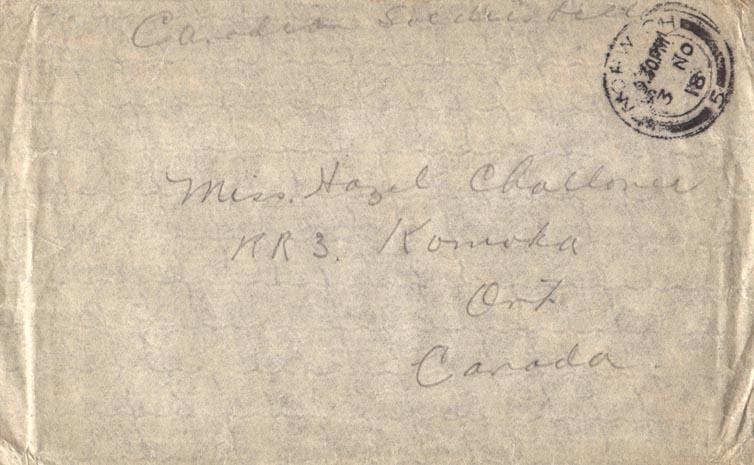 Canadian Soldiers
NORWICH
9.30PM
NO
18
5
Miss. Hazel Challoner
RR 3. Komoka
Ont
Canada.